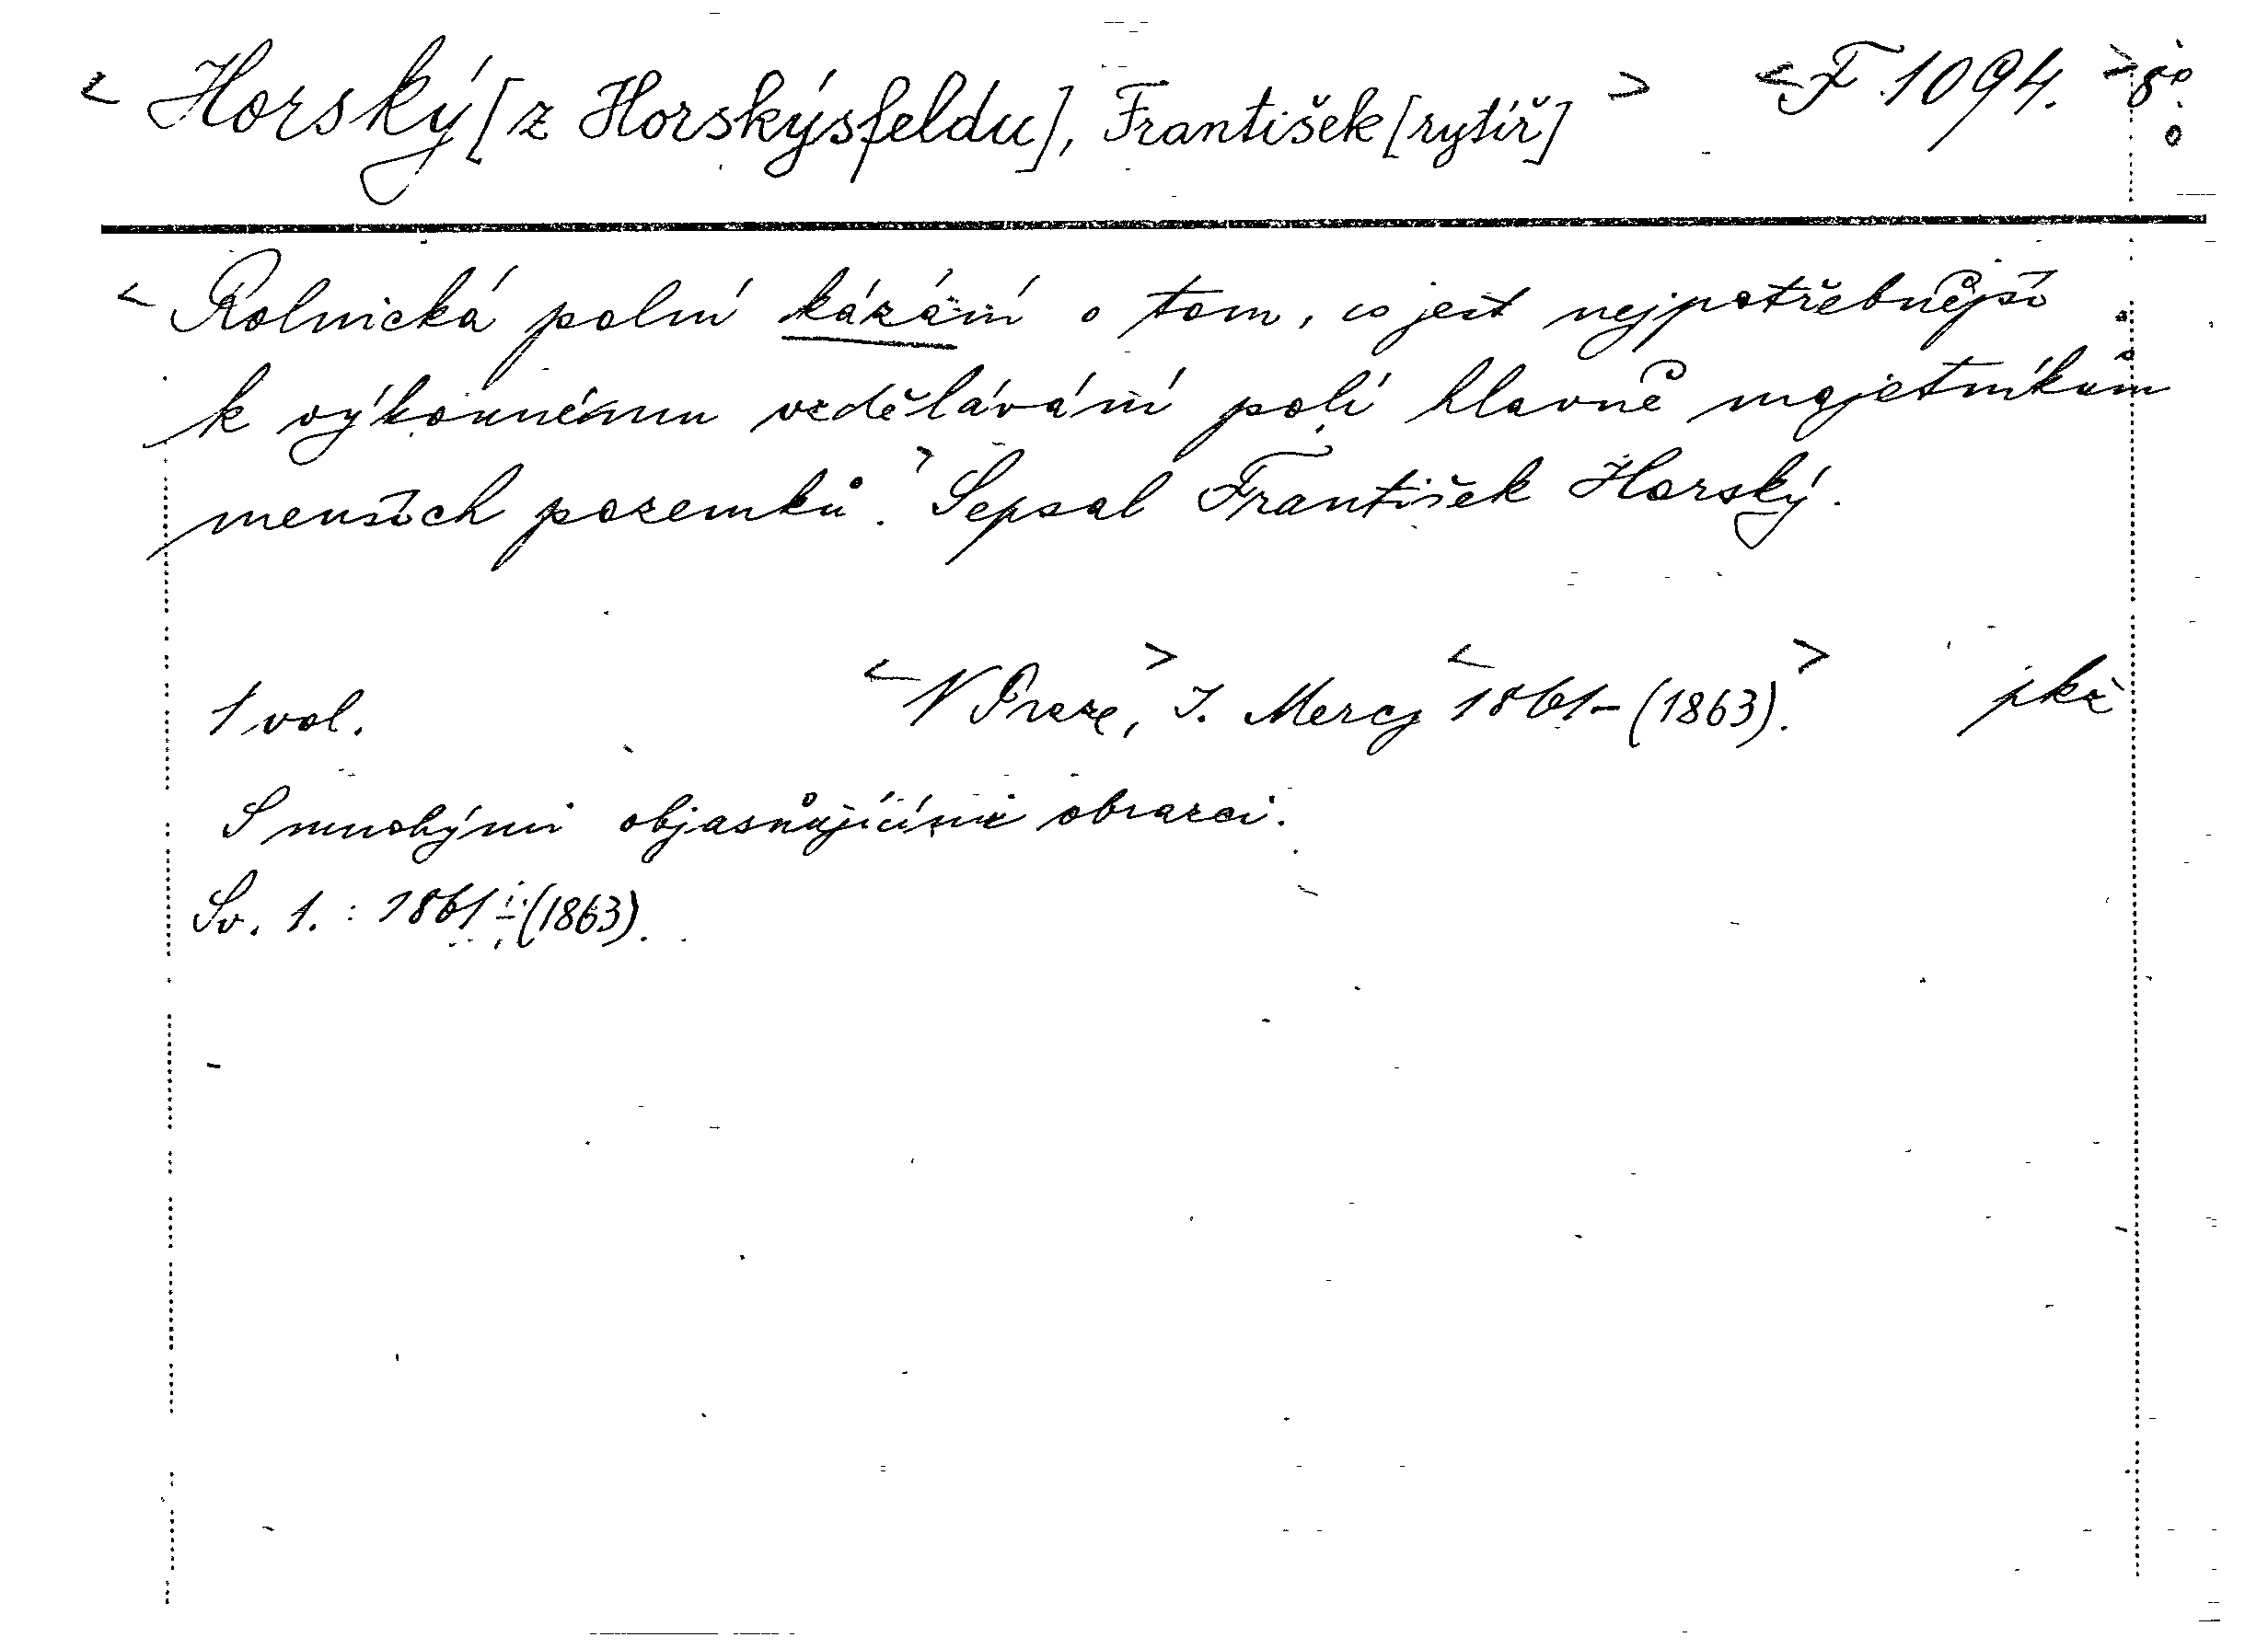 < Horský [z Horskýsfeldu], František [rytíř] > < F 1094. > 8°.
< Rolnická polní kázání o tom, co jest nejpotřebnější
k výkonnému vzdělávání polí hlavně majetníkům
menších pozemků. > Sepsal František Horský.
1 vol. < V Praze, > I. Mercy < 1861-(1863). > pkž
S mnohými objasňujícími obrazci.
Sv. 1. : 1861-(1863).